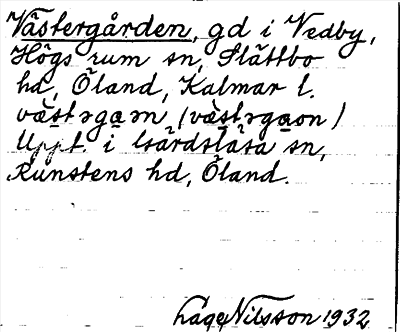 Västergården, gd i Vedby,
Högs rum sn, Slättbo
hd, Öland, Kalmar l.
Uppt. i Gärdslösa sn,
Runstens hd, Öland.
Lage Nilsson 1932